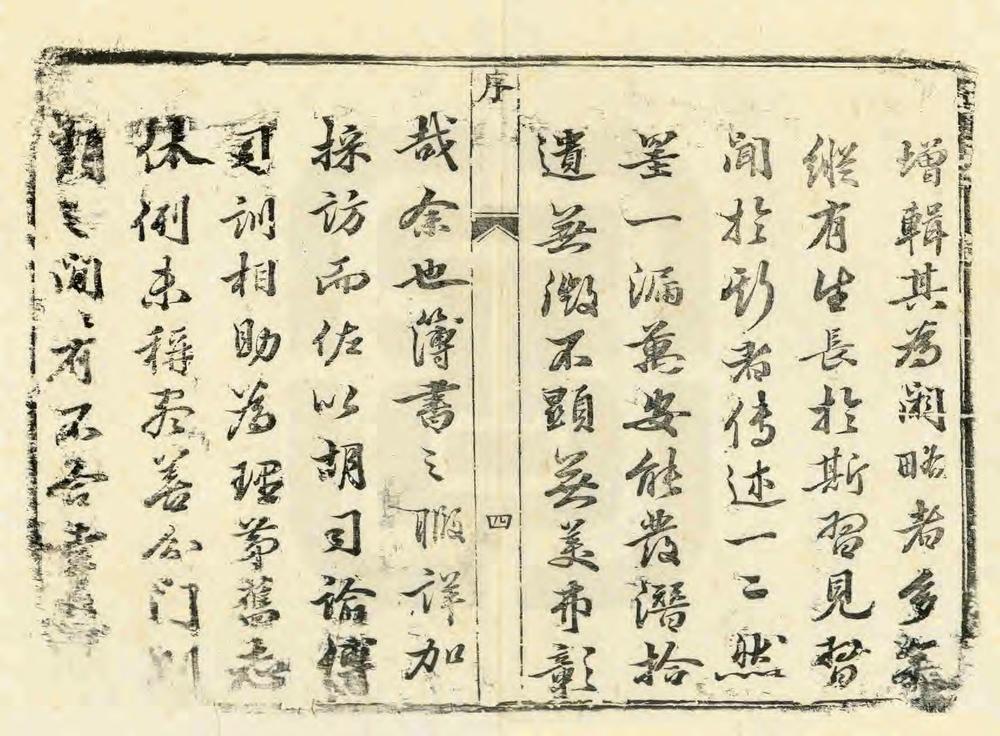 增輯其為闕略者多矣
縱有生長於斯習見習
聞於斯者傳述一二然
墨一漏萬安能發潛拾
遺無微不顯無美弗彰
序
四
哉余也簿書之暇詳加
採訪而佐以胡司諭傅
司訓相助為理第舊志
体例未稱盡善分門別
類之間間有不合